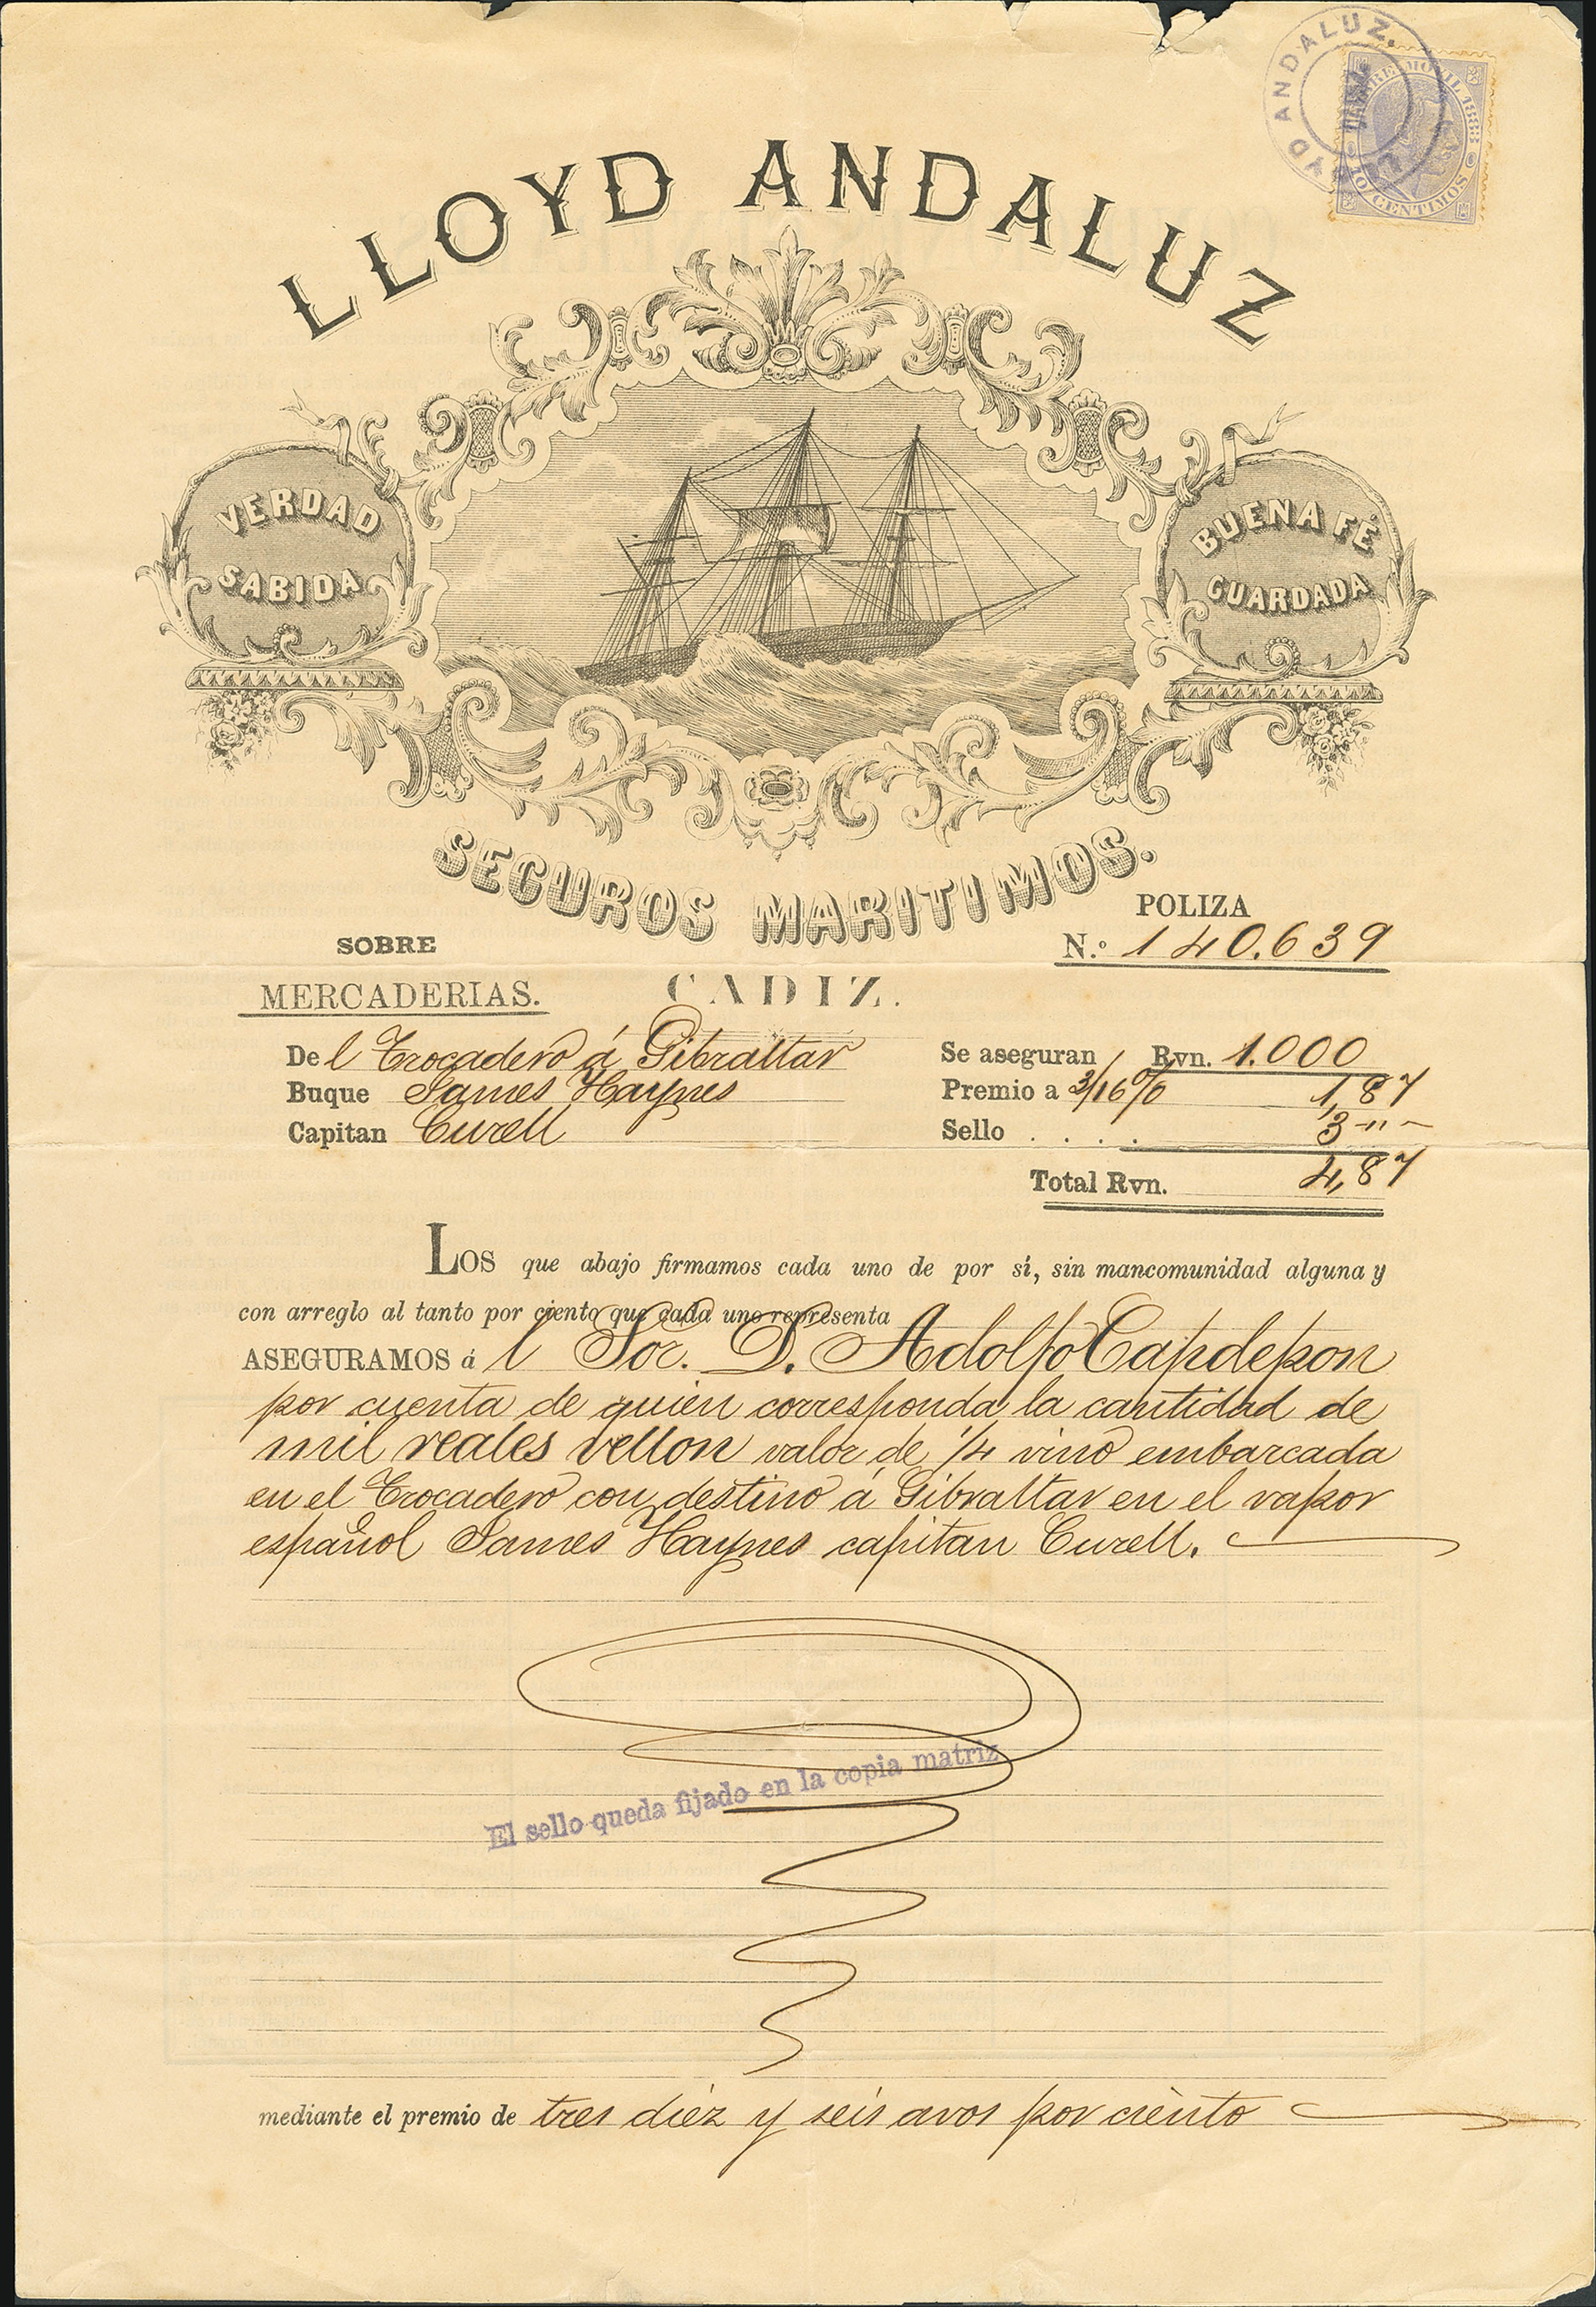 LLOYD ANDALUZ
LLOYD ANDALUZ.
TIMBRE MOVIL 1883
10 CENTIMOS
VERDAD
SABIDA
BUENA FÉ
GUARDADA
SEGUROS MARITIMOS.
POLIZA
N.º 140.639
SOBRE
MERCADERIAS.
CADIZ.
Del Trocadero á Gibraltar
Buque James Haynes
Capitan Curell
Se aseguran Rvn. 1.000
Premio a 3/16 % 1,87
Sello . . . . 3 -"-
Total Rvn. 4,87
Los que abajo firmamos cada uno de por sí, sin mancomunidad alguna y
con arreglo al tanto por ciento que cada uno representa
ASEGURAMOS ál Sor. D. Adolfo Capdepon
por cuenta de quien corresponda la cantidad de
mil reales vellon valor de 1/4 vino embarcada
en el Trocadero con destino á Gibraltar en el vapor
español James Haynes capitan Curell.
El sello queda fijado en la copia matriz
mediante el premio de tres diéz y séis avos por ciento